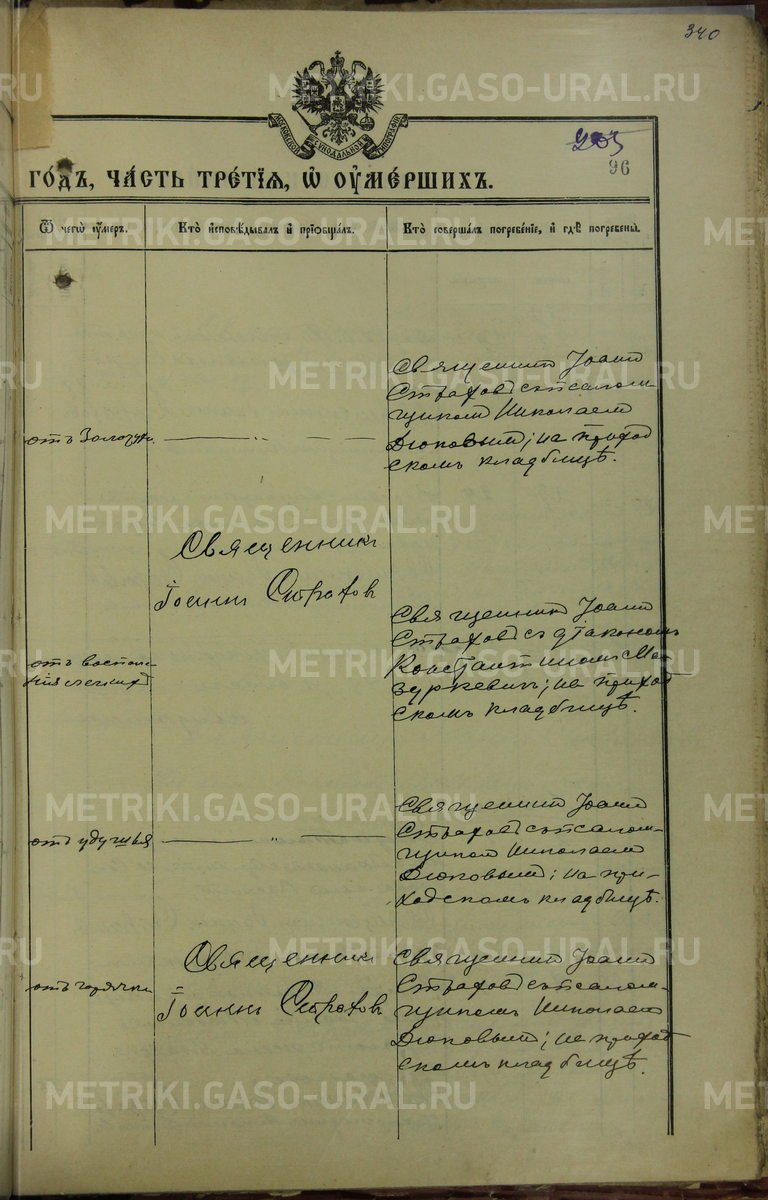 340
МОСКОВСКОЙ СѴНОДАЛЬНОЙ ТИПОГРАФІИ
205
96
го́дъ, ча́сть тре́тїѧ, ѡ҆ ᲂу҆ме́ршихъ.
Ѿ чегѡ̀ ᲂу҆́меръ.
Кто̀ и҆сповѣ́дывалъ и҆ прїѡбща́лъ.
Кто̀ соверша́лъ погребе́нїе, и҆ гдѣ̀ погребены̀.
отъ Золотухи.
Священникъ Іоаннъ
Страховъ съ псалом-
щикомъ Николаемъ
; на приход
скомъ кладбищѣ.
отъ воспале
нія легкихъ
Священникъ
Іоаннъ Страховъ
Священникъ Іоаннъ
Страховъ съ діакономъ
Константиномъ Ма
зуркевичъ; на приход
скомъ кладбищѣ.
отъ удушья
Священникъ Іоаннъ
Страховъ съ псалом-
щикомъ Николаемъ
; на при-
ходскомъ кладбищѣ.
отъ горячки
Священникъ
Іоаннъ Страховъ
Священникъ Іоаннъ
Страховъ съ псалом-
щикомъ Николаемъ
; на приход
скомъ кладбищѣ.
METRIKI.GASO-URAL.RU